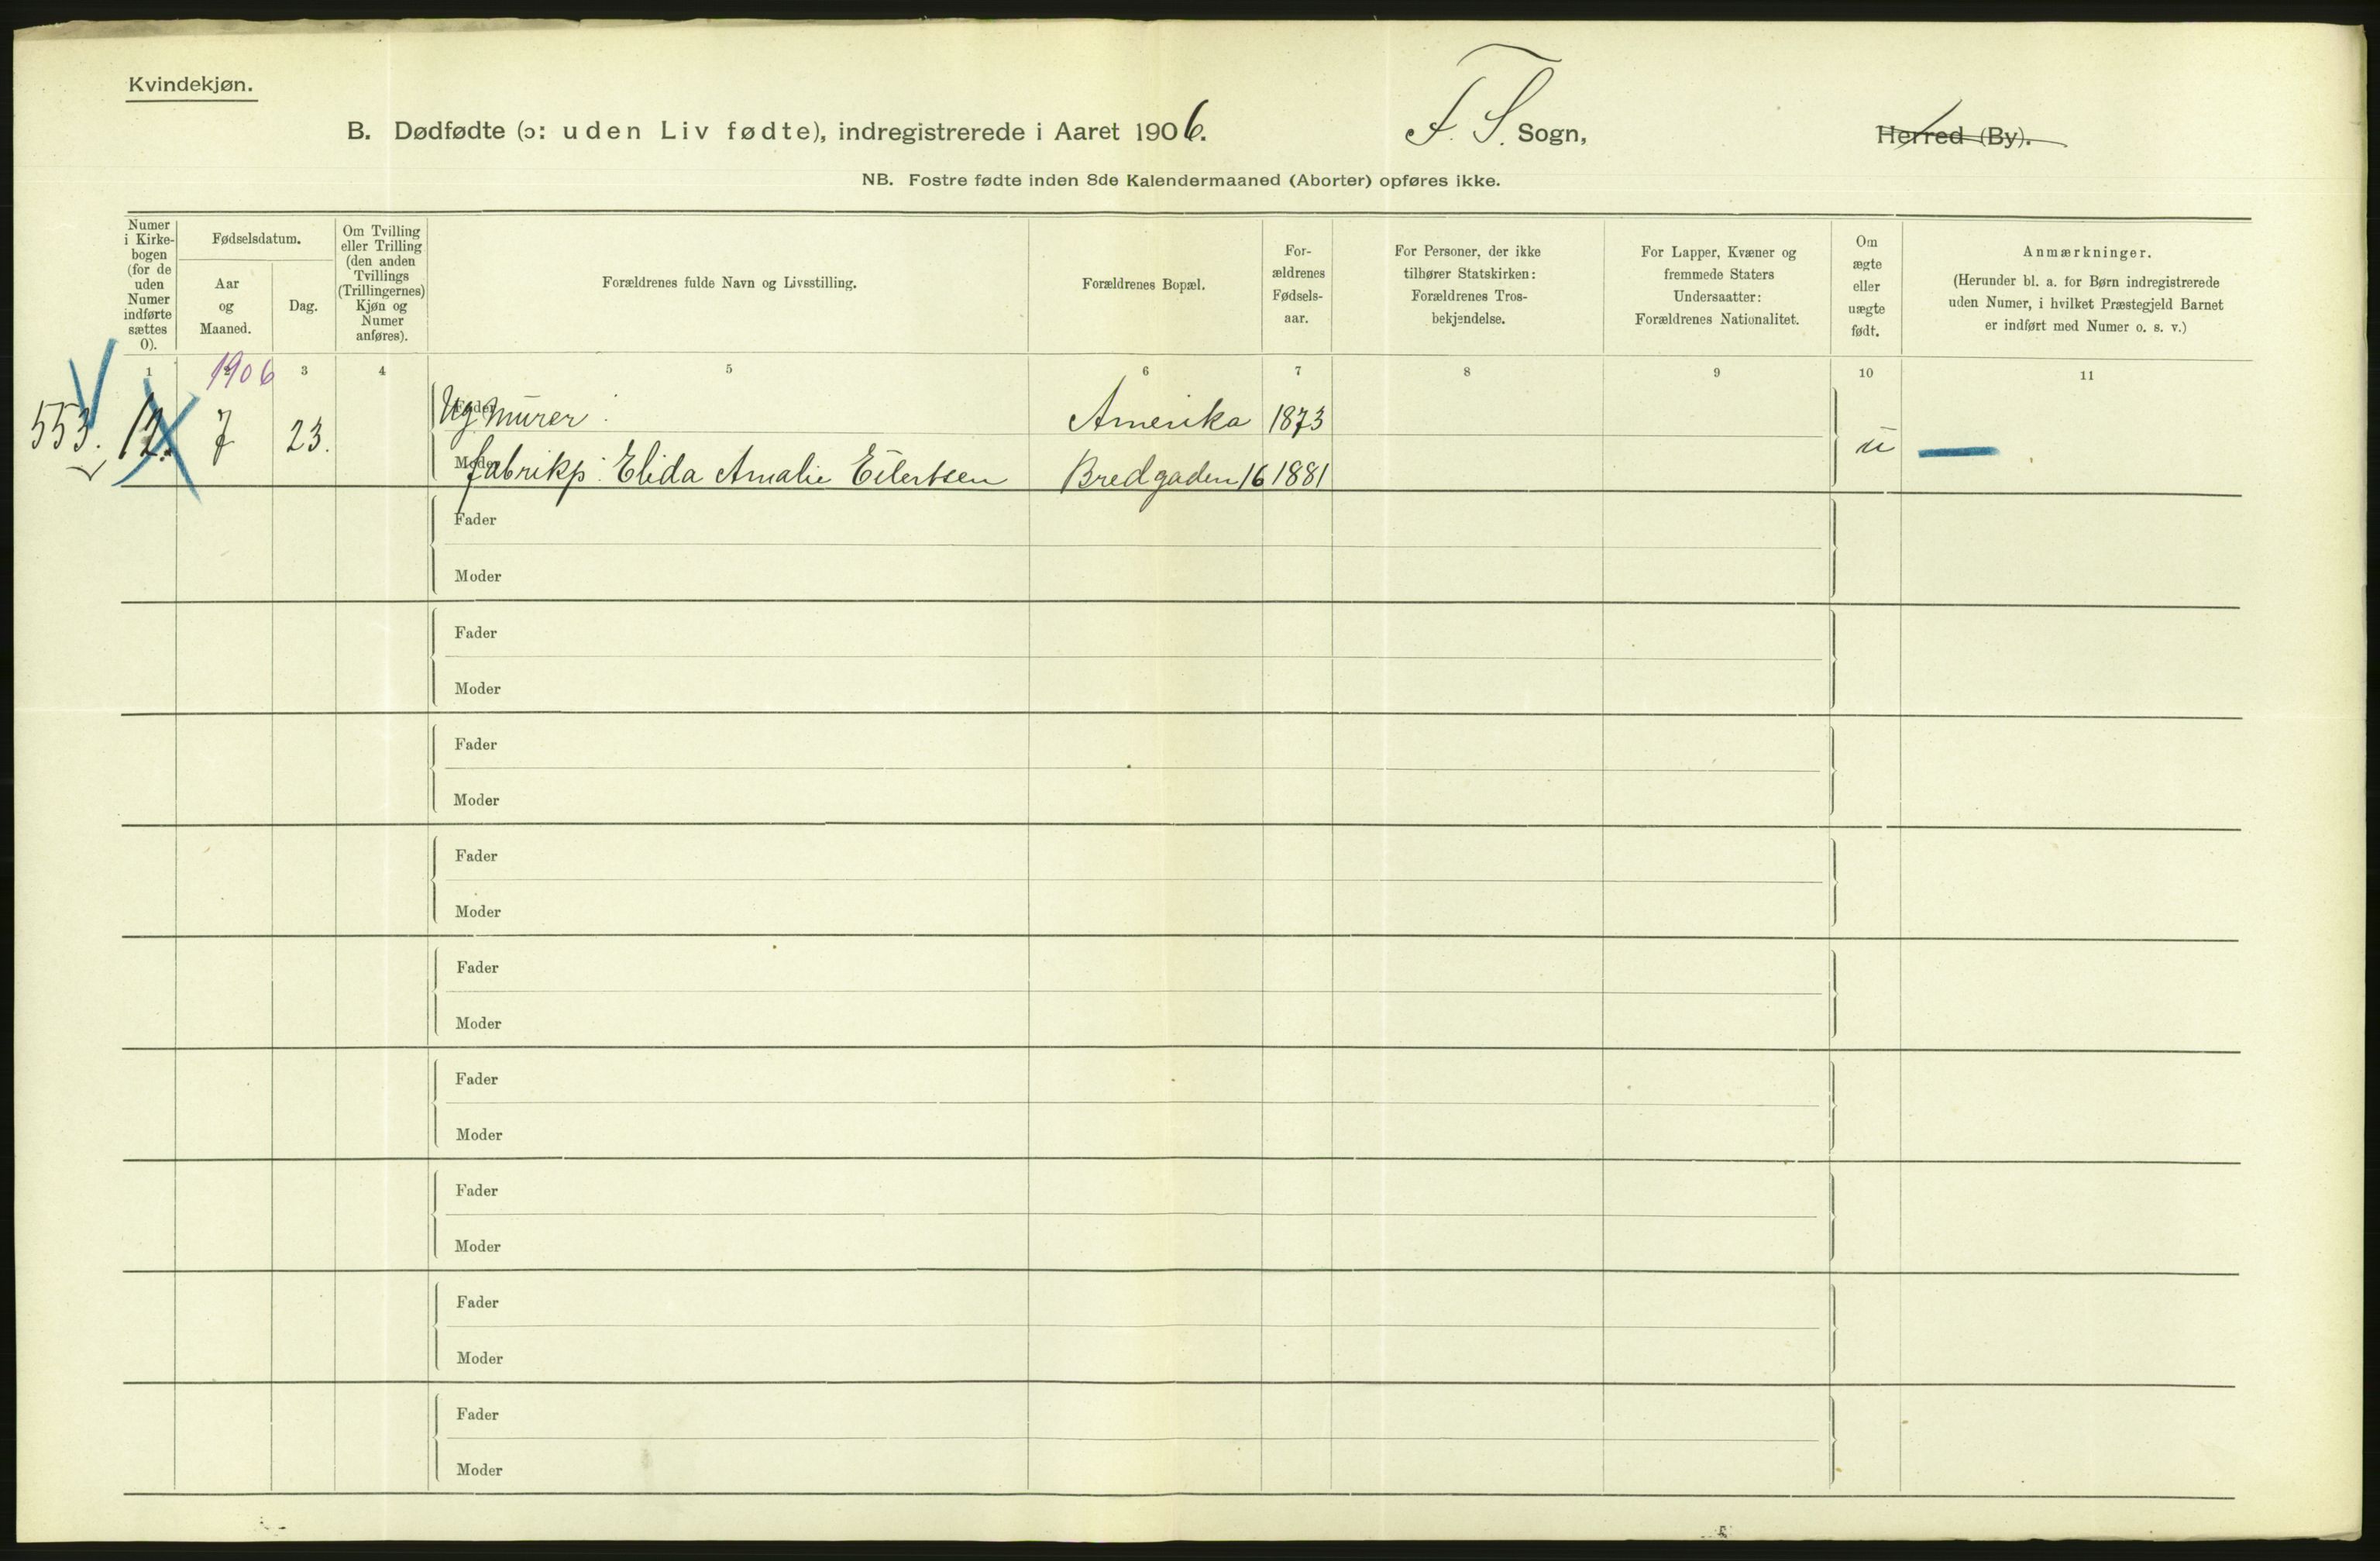 Kvindekjøn.
B. Dødfødte (ɔ: uden Liv fødte), indregistrerede i Aaret 1906. F. S. Sogn, Herred (By).
NB. Fostre fødte inden 8de Kalendermaaned (Aborter) opføres ikke.
Numer i Kirke-bogen (for de uden Numer indførte sættes 0).
Fødselsdatum.
Aar og Maaned.
Dag.
Om Tvilling eller Trilling (den anden Tvillings (Trillingernes) Kjøn og Numer anføres).
Forældrenes fulde Navn og Livsstilling.
Forældrenes Bopæl.
For-ældrenes Fødsels-aar.
For Personer, der ikke tilhører Statskirken: Forældrenes Tros-bekjendelse.
For Lapper, Kvæner og fremmede Staters Undersaatter: Forældrenes Nationalitet.
Om ægte eller uægte født.
Anmærkninger.
(Herunder bl. a. for Børn indregistrerede uden Numer, i hvilket Præstegjeld Barnet er indført med Numer o. s. v.)
1 2 3 4 5 6 7 8 9 10 11
1906
553. 12. 7 23.
Fader Ug Murer Amerika 1873
u
Moder fabrikp: Elida Amalie Eilertsen Bredgaden 16 1881
Fader
Moder
Fader
Moder
Fader
Moder
Fader
Moder
Fader
Moder
Fader
Moder
Fader
Moder
Fader
Moder
Fader
Moder